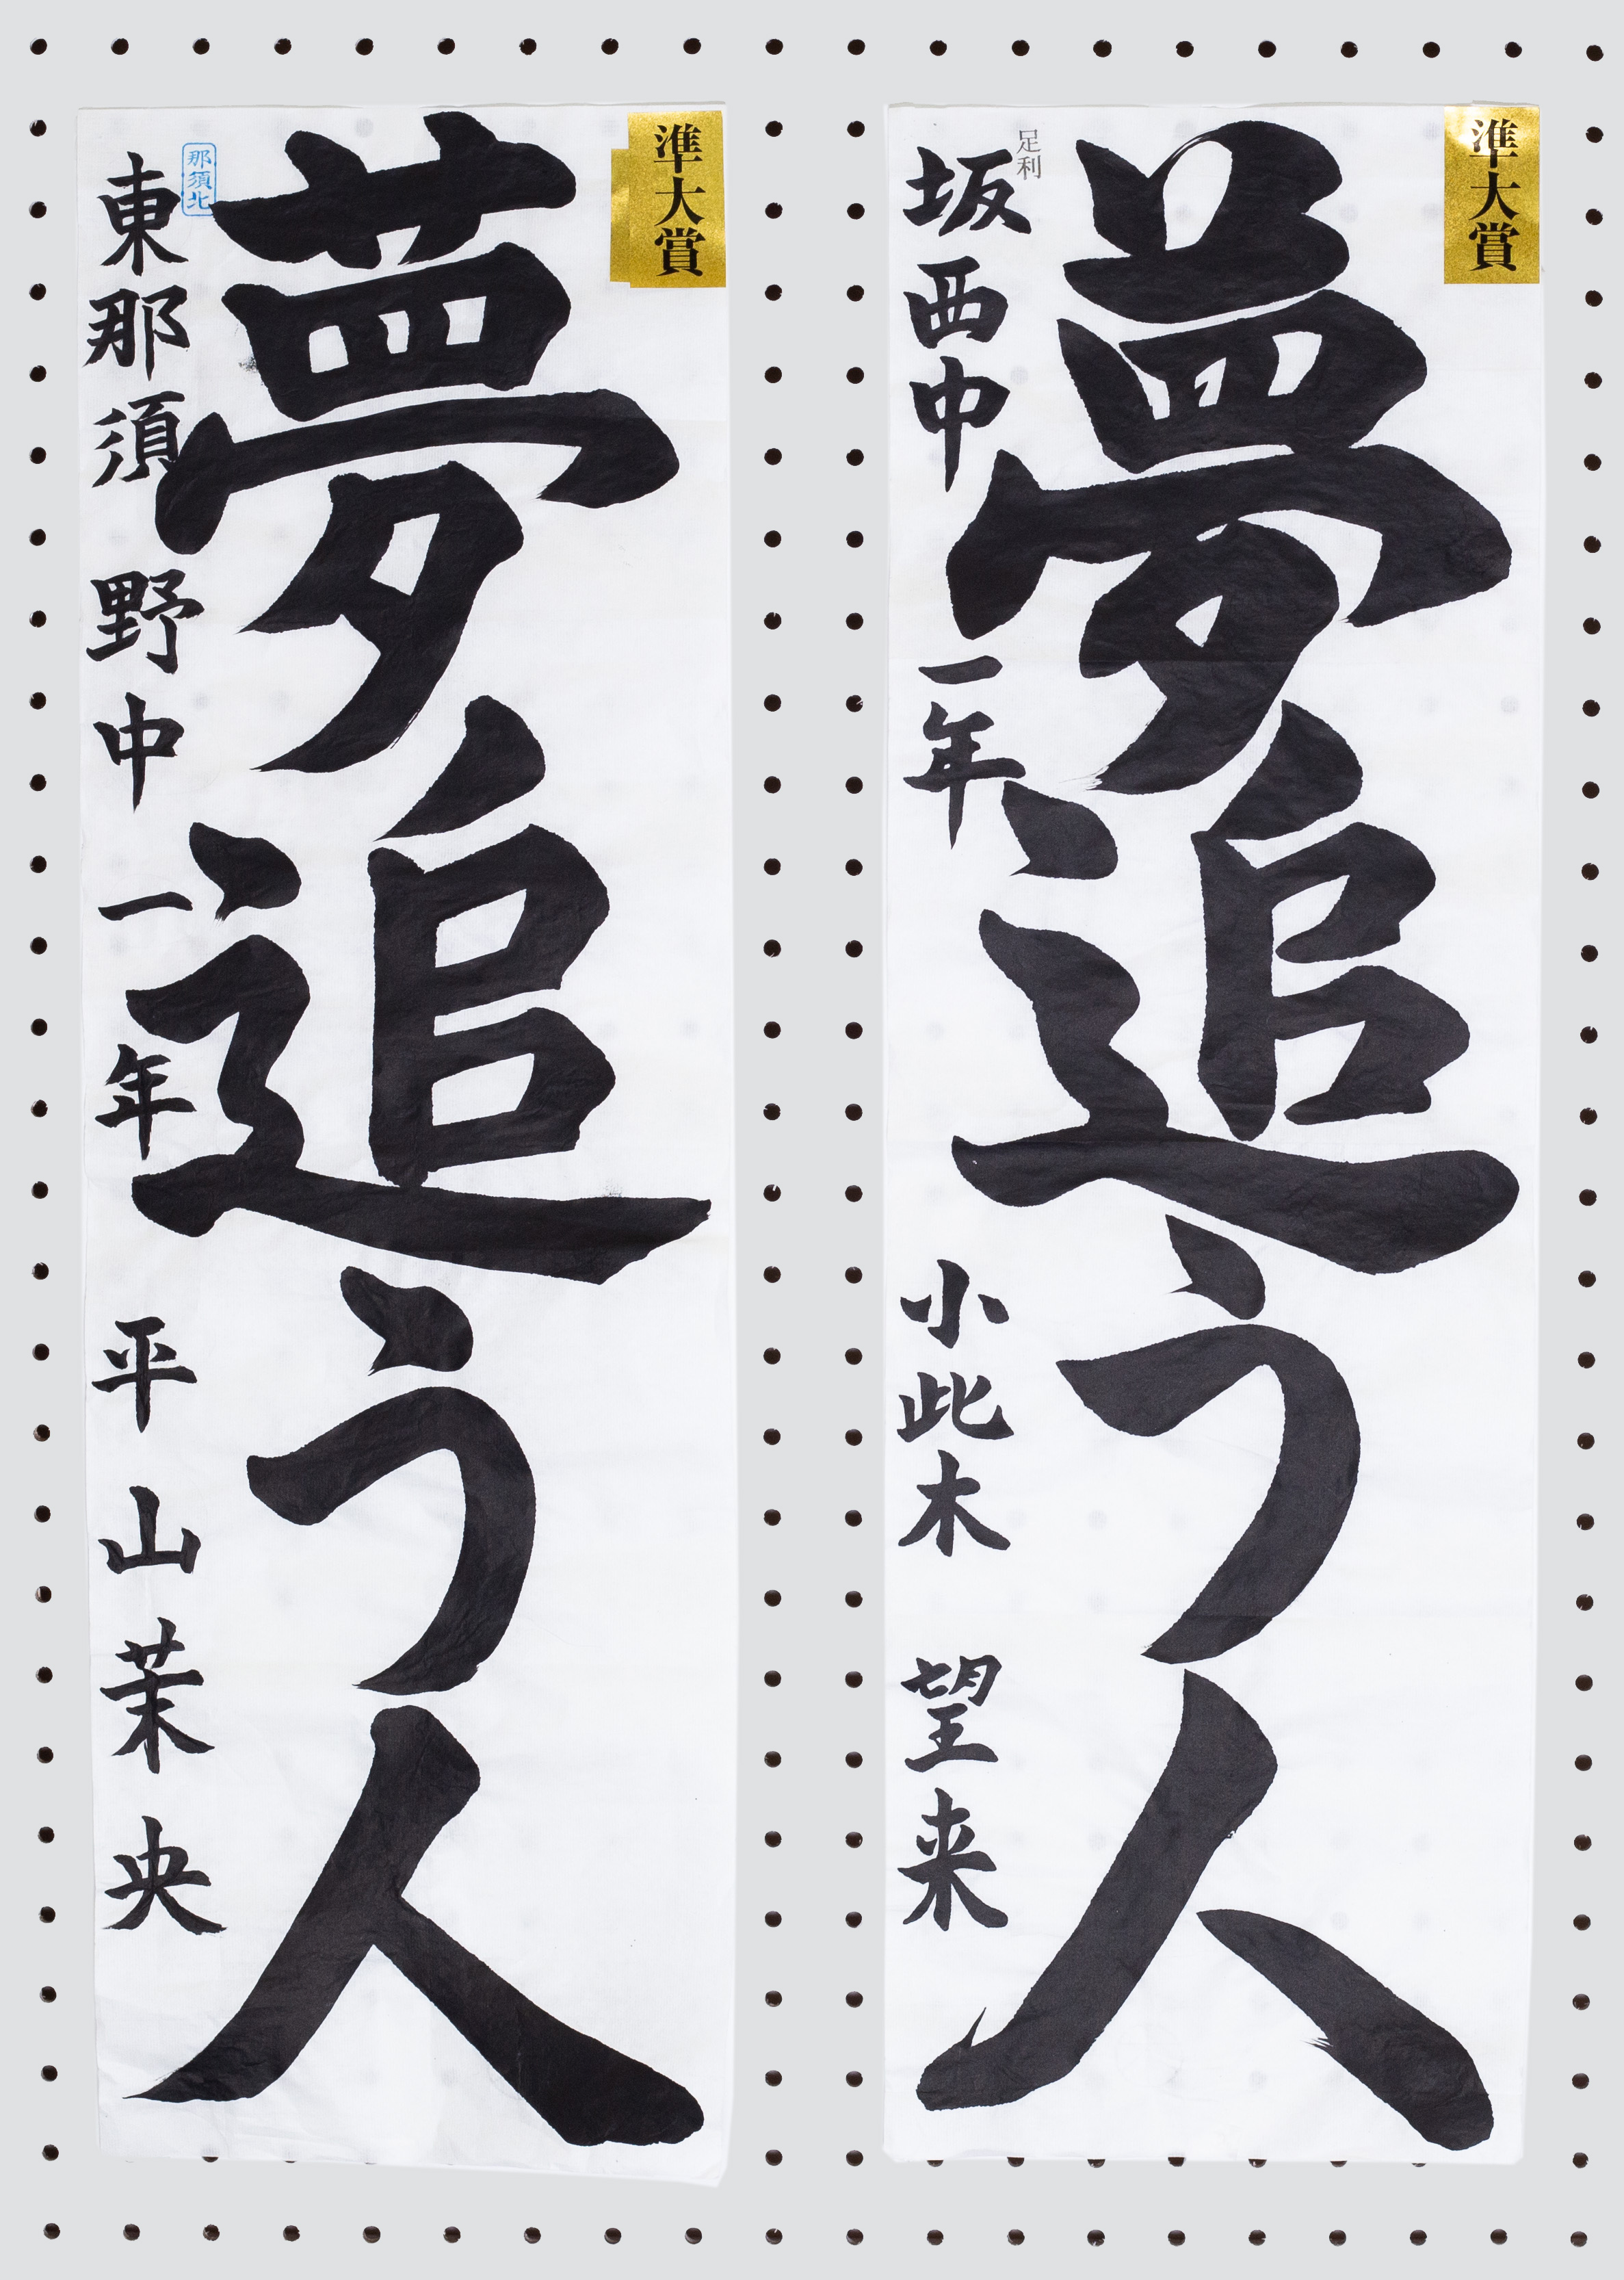 準大賞
夢追う人
足利
坂西中 一年 小此木 望来
準大賞
夢追う人
那須北
東那須野中 一年 平山茉央